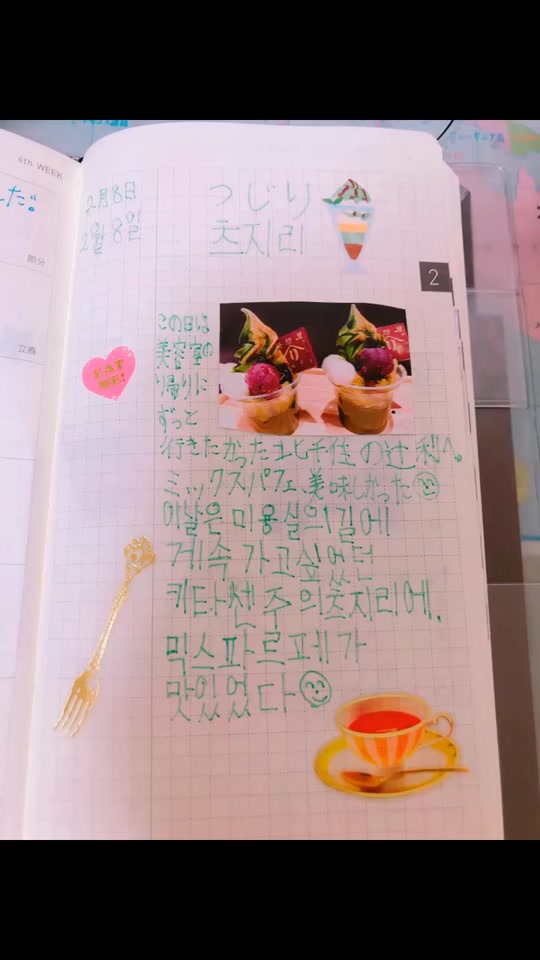 6th WEEK
た。
部分
立春
2月8日
2월 8일
つじり
츠지리
2
EAT
ME!
この日は
美容室の
り帰りに
ずっと
行きたかった北千住の辻利へ。
ミックスパフェ美味しかった
이날은 미용실의길에
계속 가고싶었던
키타센주의츠지리에.
믹스파르페가
맛있었다